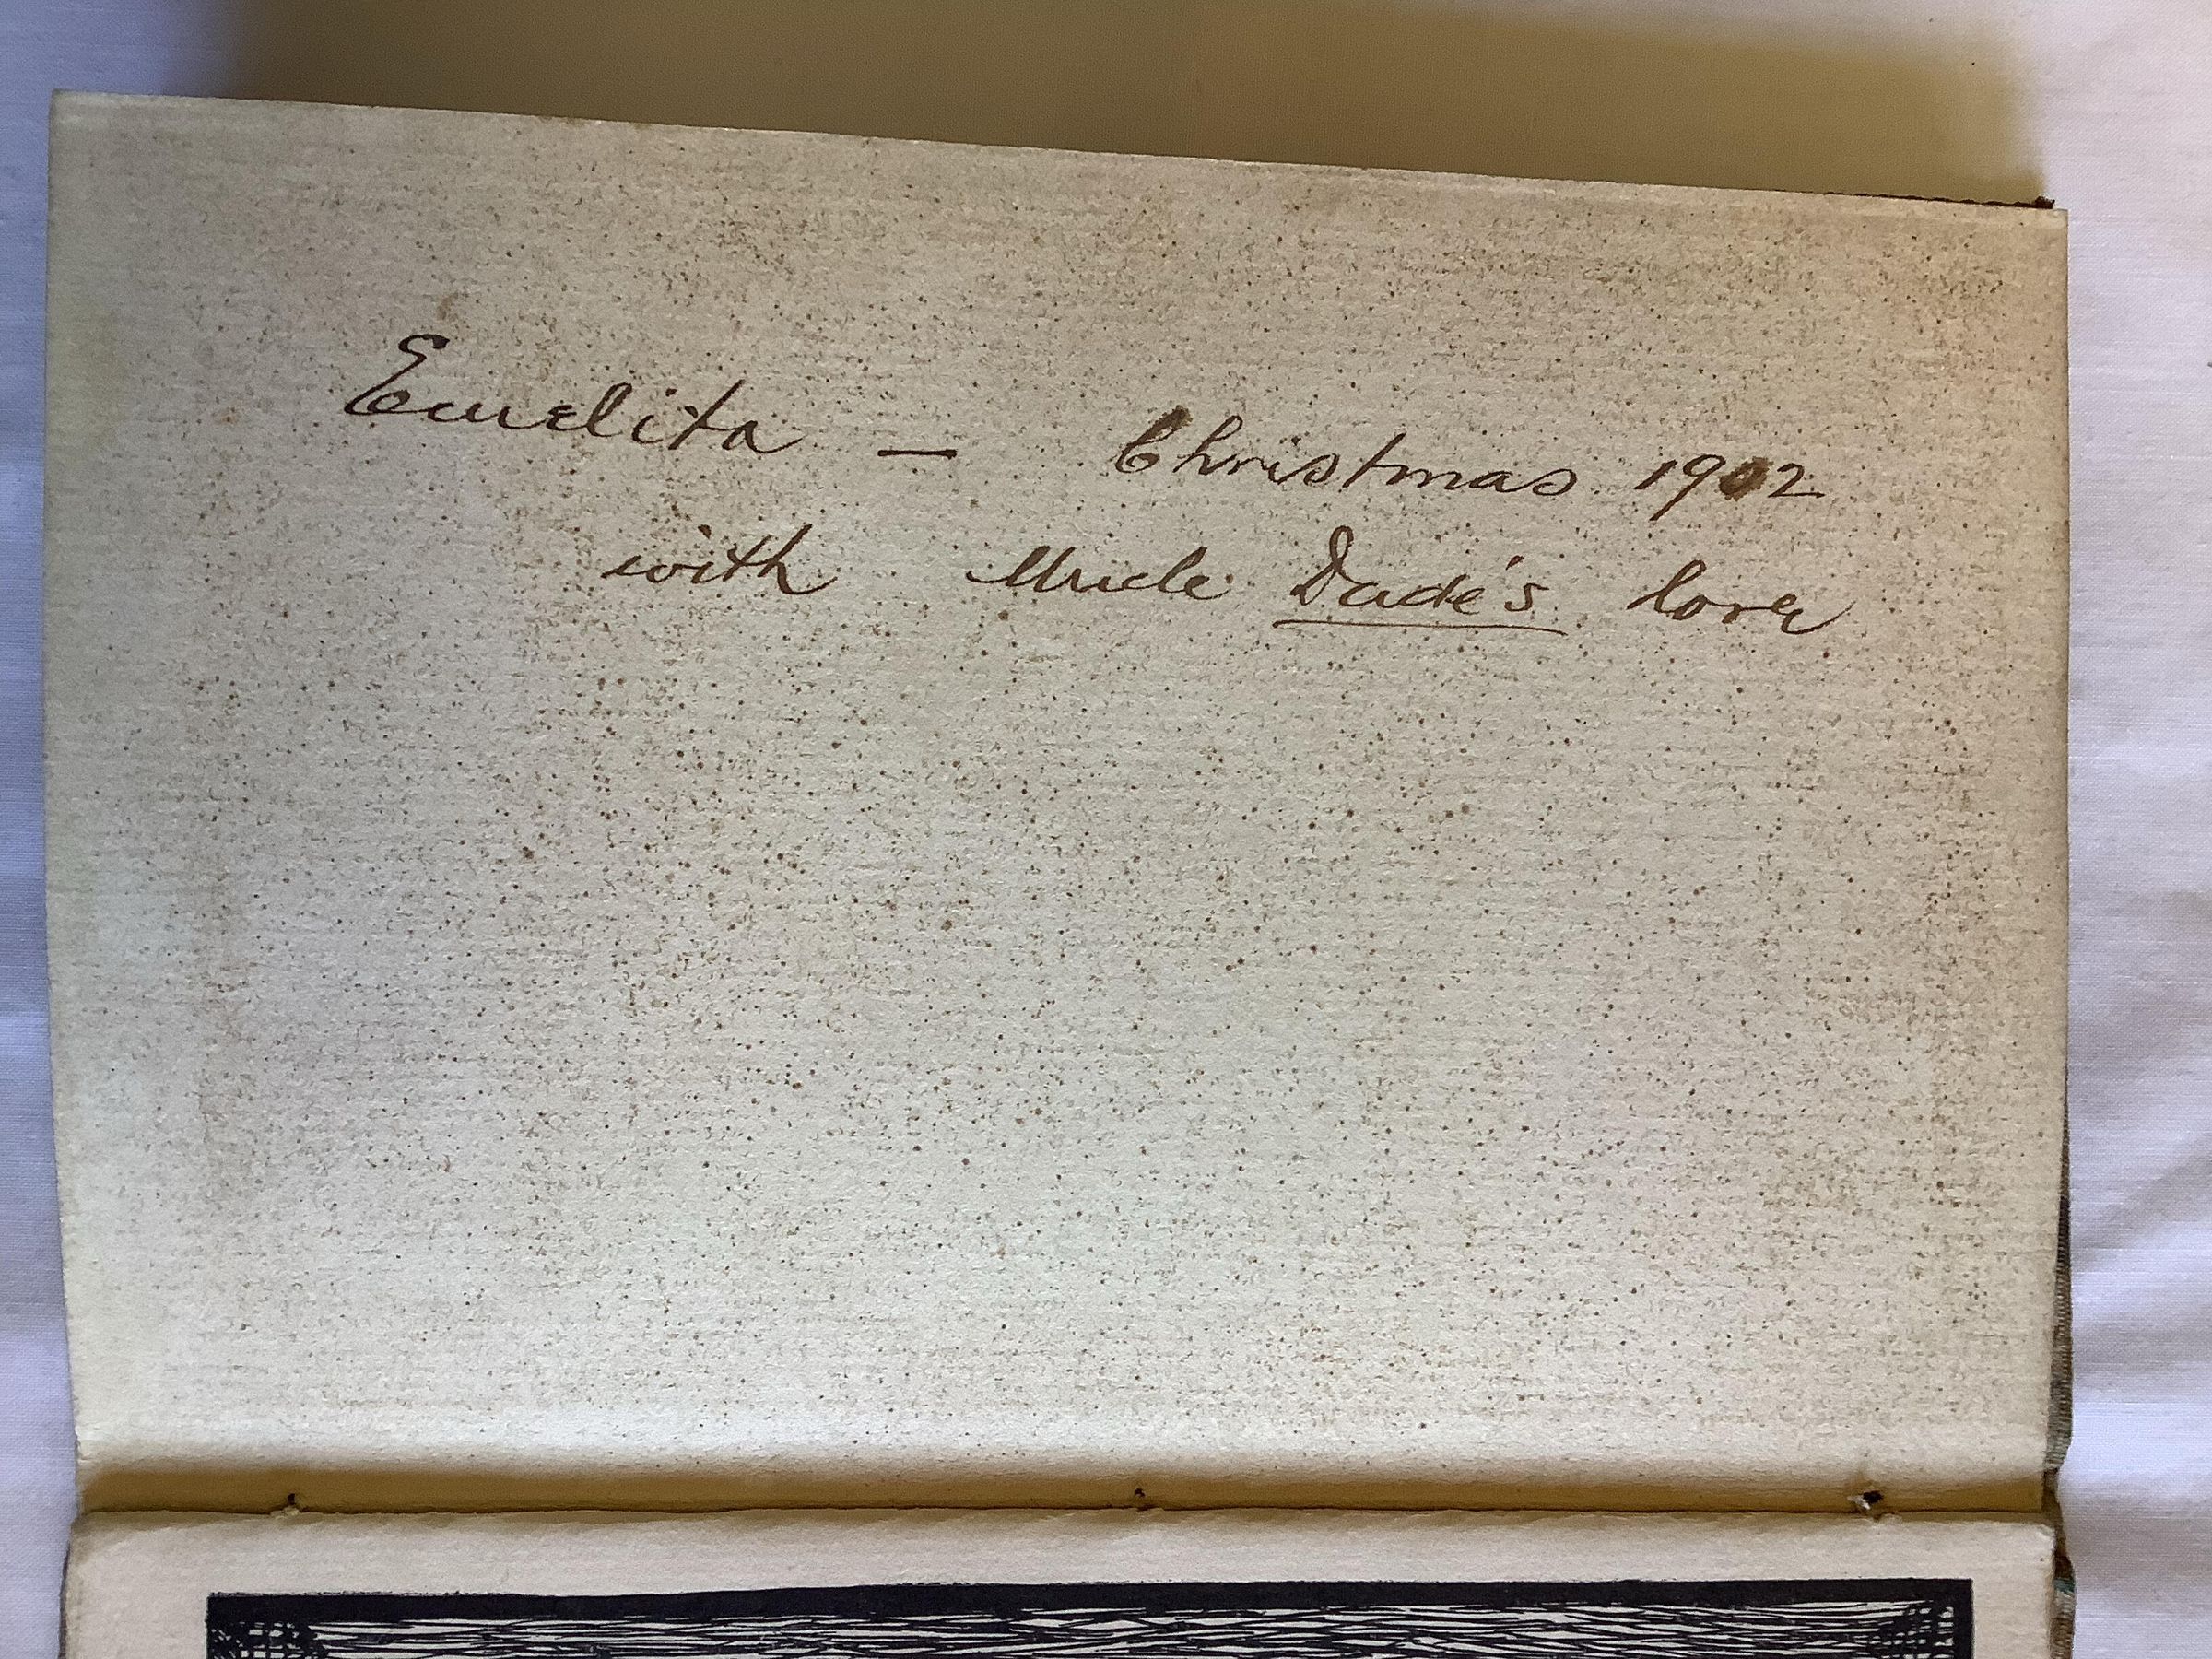 Emelita — Christmas 1902
with Uncle Dade's love